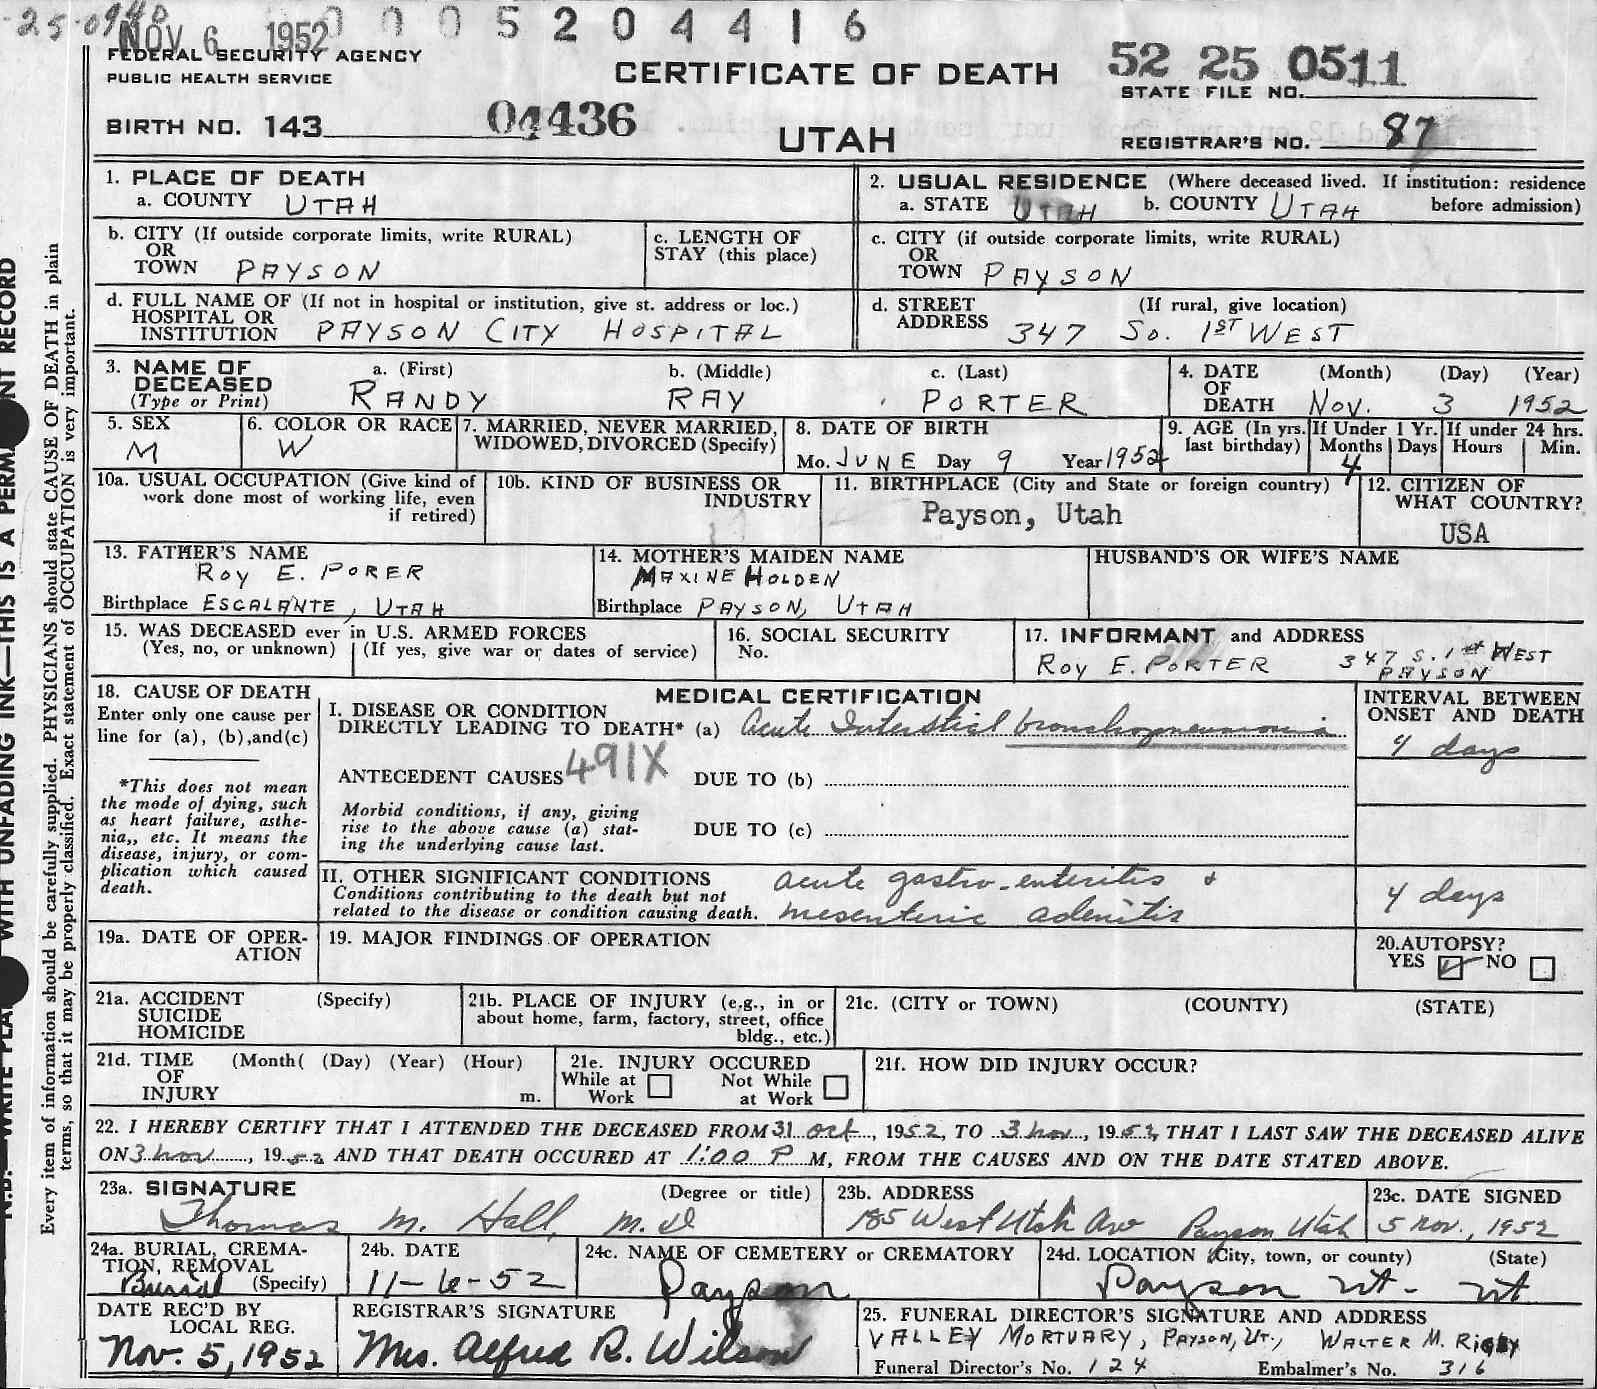 NOV 6 1952
0 0 0 5 2 0 4 4 1 6
FEDERAL SECURITY AGENCY
PUBLIC HEALTH SERVICE
CERTIFICATE OF DEATH
52 25 0511
STATE FILE NO.
BIRTH NO. 143 04436
UTAH
REGISTRAR'S NO. 87
1. PLACE OF DEATH
a. COUNTY UTAH
2. USUAL RESIDENCE (Where deceased lived. If institution: residence before admission)
a. STATE UTAH b. COUNTY UTAH
b. CITY (If outside corporate limits, write RURAL)
OR
TOWN PAYSON
c. LENGTH OF
STAY (this place)
c. CITY (if outside corporate limits, write RURAL)
OR
TOWN PAYSON
d. FULL NAME OF (If not in hospital or institution, give st. address or loc.)
HOSPITAL OR
INSTITUTION PAYSON CITY HOSPITAL
d. STREET (If rural, give location)
ADDRESS 347 So. 1ST WEST
3. NAME OF
DECEASED
(Type or Print)
a. (First) b. (Middle) c. (Last)
RANDY RAY PORTER
4. DATE (Month) (Day) (Year)
OF
DEATH Nov. 3 1952
5. SEX
M
6. COLOR OR RACE
W
7. MARRIED, NEVER MARRIED,
WIDOWED, DIVORCED (Specify)
8. DATE OF BIRTH
Mo. JUNE Day 9 Year 1952
9. AGE (In yrs. last birthday)
If Under 1 Yr.
Months Days
4
If under 24 hrs.
Hours Min.
10a. USUAL OCCUPATION (Give kind of
work done most of working life, even
if retired)
10b. KIND OF BUSINESS OR
INDUSTRY
11. BIRTHPLACE (City and State or foreign country)
Payson, Utah
12. CITIZEN OF
WHAT COUNTRY?
USA
13. FATHER'S NAME
ROY E. PORER
Birthplace ESCALANTE, UTAH
14. MOTHER'S MAIDEN NAME
MAXINE HOLDEN
Birthplace PAYSON, UTAH
HUSBAND'S OR WIFE'S NAME
15. WAS DECEASED ever in U.S. ARMED FORCES
(Yes, no, or unknown) (If yes, give war or dates of service)
16. SOCIAL SECURITY
No.
17. INFORMANT and ADDRESS
ROY E. PORTER 347 S. 1st WEST
PAYSON
18. CAUSE OF DEATH
Enter only one cause per
line for (a), (b), and (c)
*This does not mean
the mode of dying, such
as heart failure, asthe-
nia,, etc. It means the
disease, injury, or com-
plication which caused
death.
MEDICAL CERTIFICATION
I. DISEASE OR CONDITION
DIRECTLY LEADING TO DEATH* (a) Acute Interstitial bronchopneumonia
ANTECEDENT CAUSES 491X DUE TO (b)
Morbid conditions, if any, giving
rise to the above cause (a) stat-
ing the underlying cause last.
DUE TO (c)
INTERVAL BETWEEN
ONSET AND DEATH
4 days
II. OTHER SIGNIFICANT CONDITIONS
Conditions contributing to the death but not
related to the disease or condition causing death.
acute gastro-enteritis &
mesenteric adenitis
4 days
19a. DATE OF OPER-
ATION
19. MAJOR FINDINGS OF OPERATION
20. AUTOPSY?
YES NO
21a. ACCIDENT (Specify)
SUICIDE
HOMICIDE
21b. PLACE OF INJURY (e.g., in or
about home, farm, factory, street, office
bldg., etc.)
21c. (CITY or TOWN) (COUNTY) (STATE)
21d. TIME (Month( (Day) (Year) (Hour)
OF
INJURY m.
21e. INJURY OCCURED
While at Work Not While at Work
21f. HOW DID INJURY OCCUR?
22. I HEREBY CERTIFY THAT I ATTENDED THE DECEASED FROM 31 Oct, 1952, TO 3 Nov, 1952, THAT I LAST SAW THE DECEASED ALIVE
ON 3 Nov, 1952 AND THAT DEATH OCCURED AT 1:00 P M, FROM THE CAUSES AND ON THE DATE STATED ABOVE.
23a. SIGNATURE (Degree or title)
Thomas M. Hall, M.D
23b. ADDRESS
185 West Utah Ave Payson Utah
23c. DATE SIGNED
5 Nov., 1952
24a. BURIAL, CREMA-
TION, REMOVAL
Burial (Specify)
24b. DATE
11-6-52
24c. NAME OF CEMETERY or CREMATORY
Payson
24d. LOCATION (City, town, or county) (State)
Payson Ut- Ut
DATE REC'D BY
LOCAL REG.
Nov. 5, 1952
REGISTRAR'S SIGNATURE
Mrs. Alfred R. Wilson
25. FUNERAL DIRECTOR'S SIGNATURE AND ADDRESS
VALLEY MORTUARY, PAYSON, UT., WALTER M. RIGBY
Funeral Director's No. 124 Embalmer's No. 316
Every item of information should be carefully supplied. PHYSICIANS should state CAUSE OF DEATH in plain
terms, so that it may be properly classified. Exact statement of OCCUPATION is very important.
WITH UNFADING INK—THIS IS A
RECORD